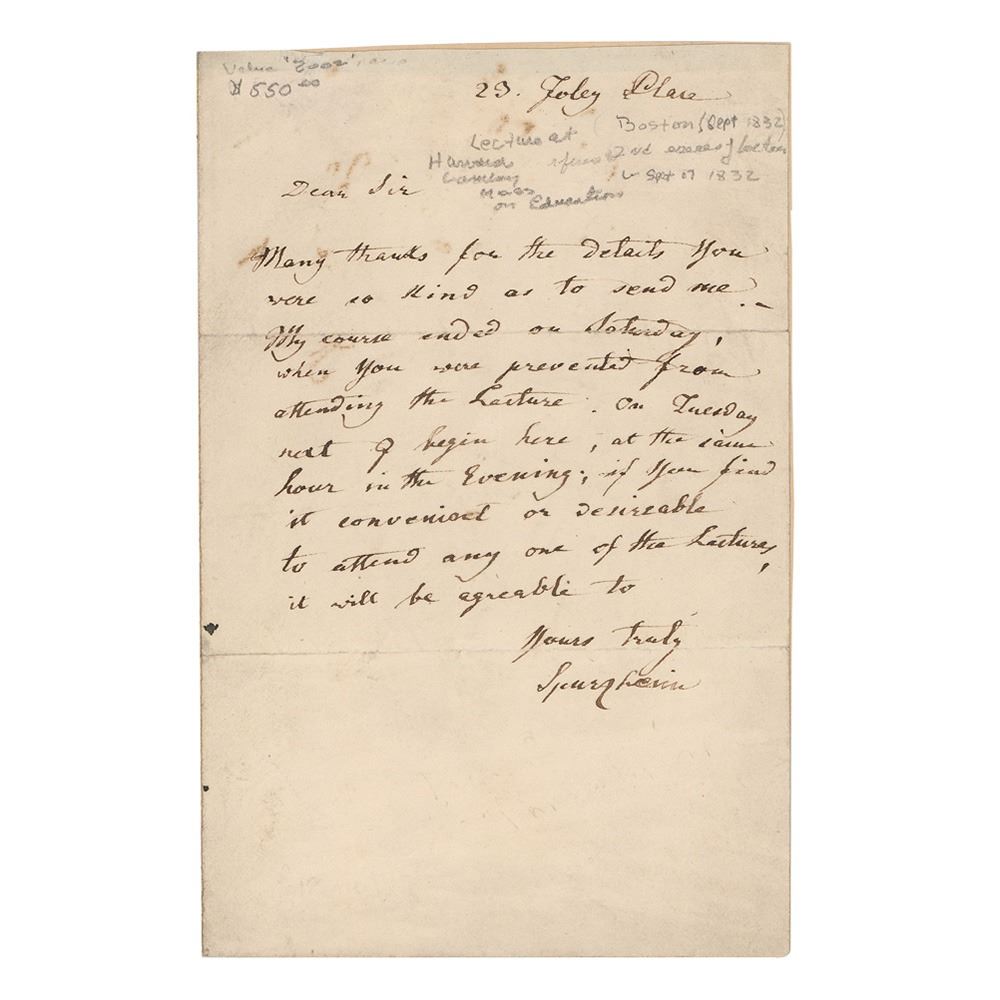 Value
$ 550.00
23. Foley Place
Boston (Sept 1832)
Lecture at
Harvard
2nd
Sept 17 1832
Mass
on Education
Dear Sir
Many thanks for the details you
were so kind as to send me.-
My course ended on Saturday,
when you were prevented from
attending the Lecture. On Tuesday
next I begin here, at the same
hour in the Evening; if you find
it convenient or desireable
to attend any one of the Lectures,
it will be agreable to
Yours truly
Spurzheim